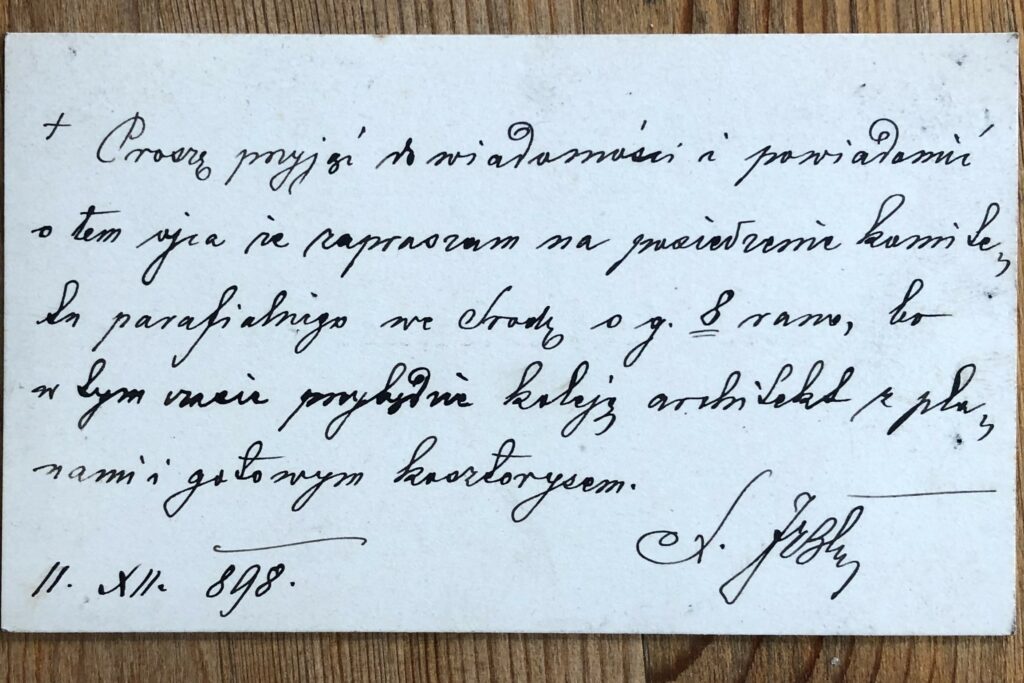 + Proszę przyjąć do wiadomości i powiadomić
o tem ojca że zapraszam na posiedzenie komite-
tu parafialnego we Środę o g. 8 rano, bo
w tym czasie przybędzie koleją architekt z pla-
nami i gotowym kosztorysem.
11. XII. 898.